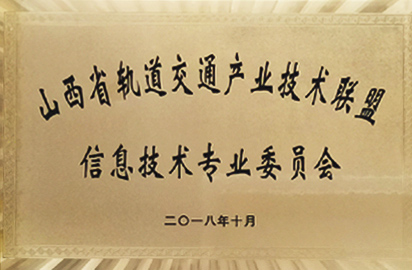 山西省轨道交通产业技术联盟
信息技术专业委员会
二〇一八年十月